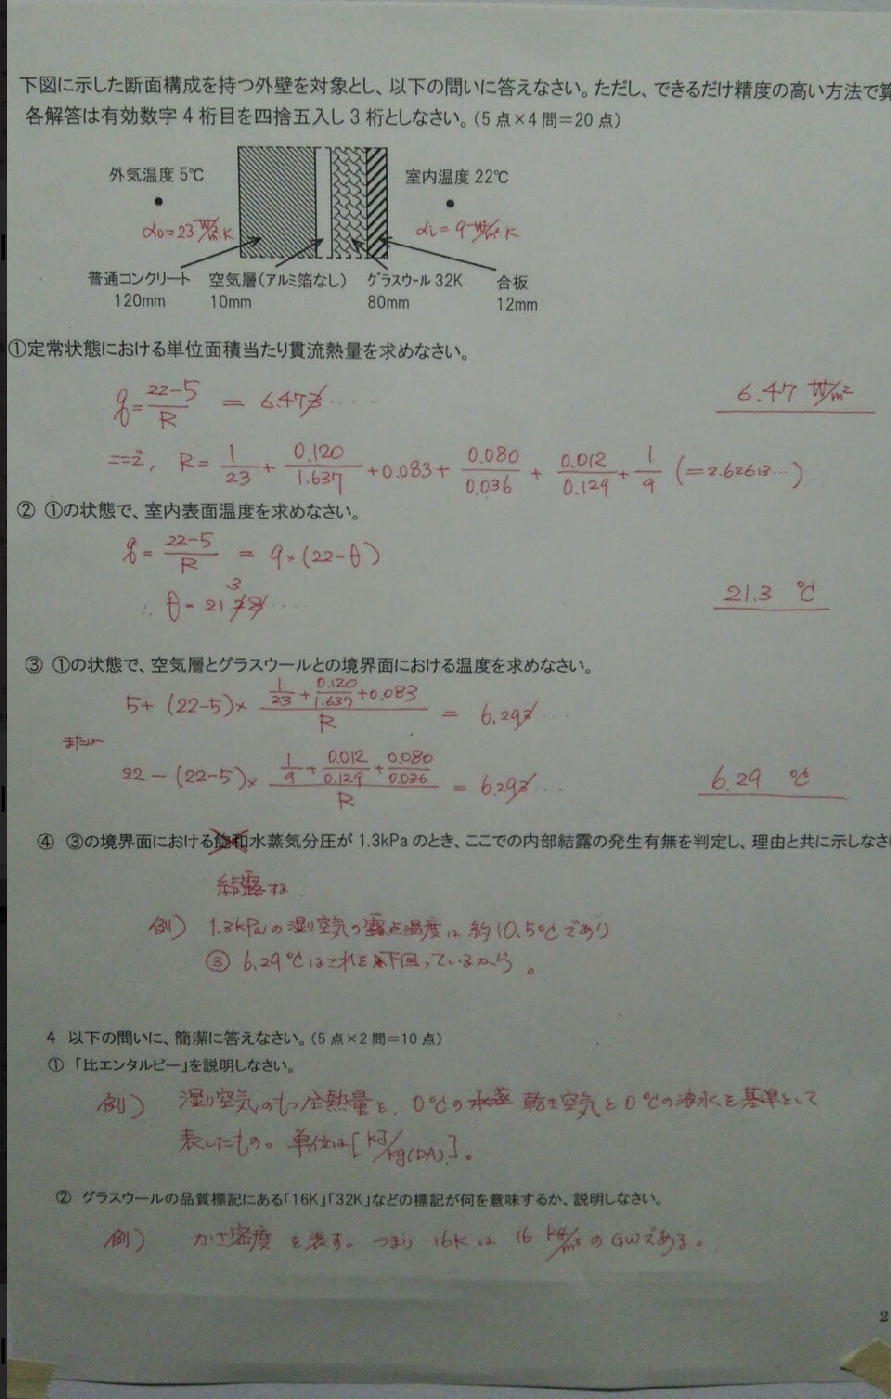 下図に示した断面構成を持つ外壁を対象とし、以下の問いに答えなさい。ただし、できるだけ精度の高い方法で算
各解答は有効数字4桁目を四捨五入し3桁としなさい。(5点×4問=20点)
外気温度 5℃
室内温度 22℃
αo=23 W/m²K
αi=9 W/m²K
普通コンクリート 空気層(アルミ箔なし) グラスウール 32K 合板
120mm 10mm 80mm 12mm
①定常状態における単位面積当たり貫流熱量を求めなさい。
q = (22-5)/R = 6.47
6.47 W/m²
ここに, R = 1/23 + 0.120/1.637 + 0.083 + 0.080/0.036 + 0.012/0.129 + 1/9 (=2.62613…)
② ①の状態で、室内表面温度を求めなさい。
q = (22-5)/R = 9×(22-θ)
∴ θ = 21.3
21.3 ℃
③ ①の状態で、空気層とグラスウールとの境界面における温度を求めなさい。
5+ (22-5)× (1/23 + 0.120/1.637 + 0.083)/R = 6.29
または
22 - (22-5)× (1/9 + 0.012/0.129 + 0.080/0.036)/R = 6.29
6.29 ℃
④ ③の境界面における飽和水蒸気分圧が 1.3kPa のとき、ここでの内部結露の発生有無を判定し、理由と共に示しなさい
結露する.
例) 1.3kPaの湿り空気の露点温度は約10.5℃であり
③ 6.29℃はこれを下回っているから。
4 以下の問いに、簡潔に答えなさい。(5点×2問=10点)
① 「比エンタルピー」を説明しなさい。
例) 湿り空気のもつ全熱量を、0℃の乾き空気と0℃の液水を基準として
表したもの。単位は[kJ/kg(DA)]。
② グラスウールの品質標記にある「16K」「32K」などの標記が何を意味するか、説明しなさい。
例) かさ密度を表す。つまり 16Kは 16 kg/m³ のGWである。
2